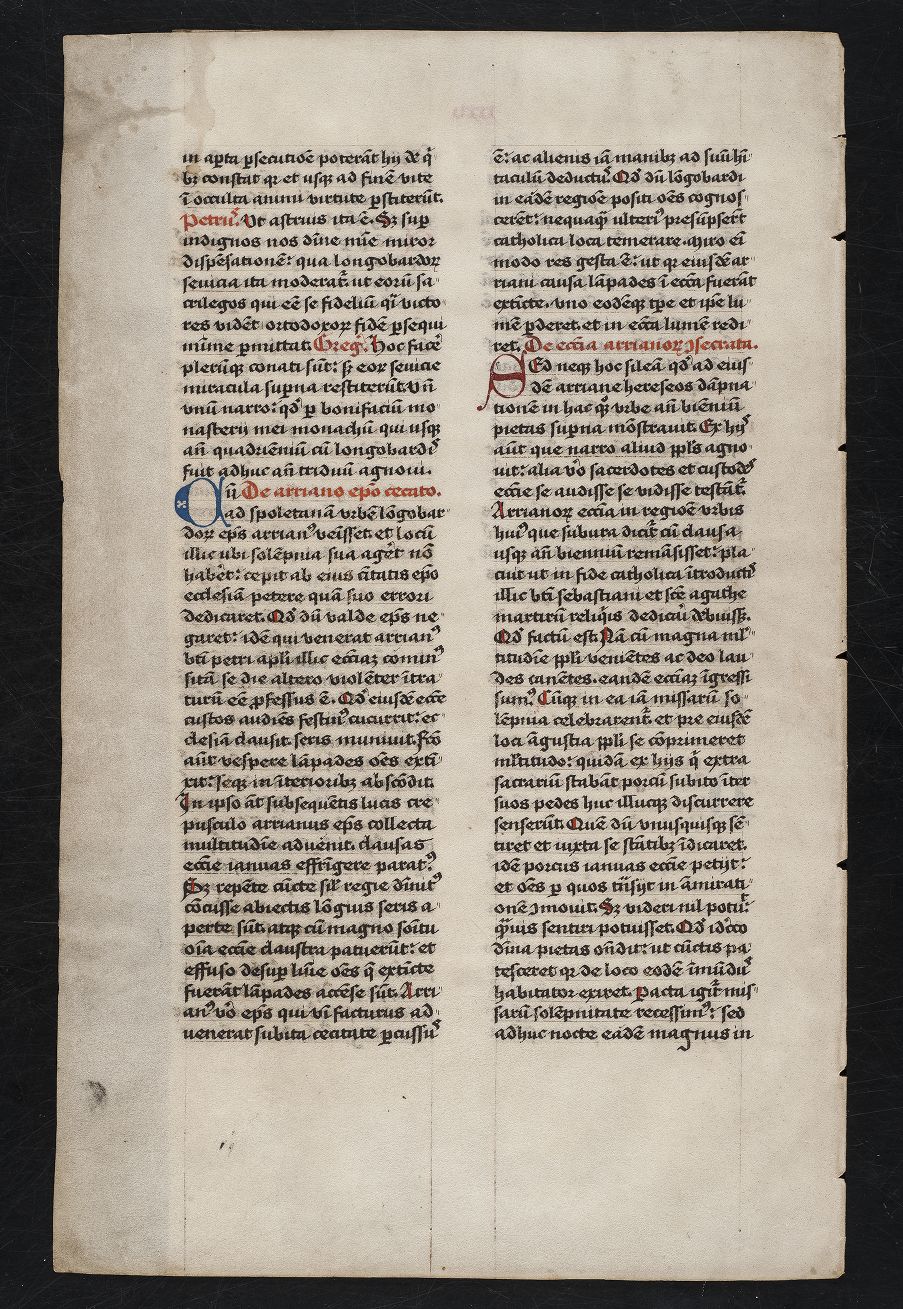 in aꝑta ꝑsecutiōe poterāt hij de qͥ
bꝫ constat qꝛ et usqꝫ ad finē vite
ī occulta animi virtute ꝑstiterūt.
Petrꝰ. Ut astruis ita ē. Sꝫ suꝑ
indignos nos diuīe mīe miror
dispēsationē: qua longobardoꝝ
seuicia ita moderat̄. ut eorū sa
crilegos qui eē se fideliū qͣi victo
res vidēt ortodoxoꝝ fidē ꝑsequi
mīme ꝑmittat. Gregꝰ. Hoc facē
pleriqꝫ conati sūt: sꝫ eoꝝ seuicie
miracula suꝑna restiterūt. Un̄
vnū narro: qd̛ ꝑ bonifaciū mo
nasterij mei monachū qui usqꝫ
an̄ quadrieniū cū longobardꝭ
fuit adhuc an̄ triduū agnoui.
Cū De arriano epō cecato.
ad spoletanā vrbē lōgobar
doꝝ ep̄s arrianꝰ venīsset et locū
illic ubi solēpnia sua aget̄ nō
habet̄: cepit ab eius ciͥtatis epō
ecclesiā petere quā suo errori
dedicaret. Qd̛ dū valde ep̄s ne
garet: idē qui venerat arrianꝰ
bt̄i petri apl̄i illic eccīaꝫ cominꝰ
sitā se die altero violēter ītra
turū eē ꝓfessus ē. Qd̛ eiusdē eccē
custos audiēs festinꝰ cucurrit: ec
clesiā clausit. seris muniuit. Fcō
aūt vespere lāpades oēs extī
xit: seqꝫ in īterioribꝫ abscōdit.
In ipso āt subsequētis lucis cre
pusculo arrianus ep̄s collecta
multitudīe aduenit. clausas
eccīe ianuas effrīgere paratꝰ
Sꝫ repēte cūcte sil̄ regie diuītꝰ
cōcusse abiectis lōgius seris a
perte sūt. atqꝫ cū magno soītu
oīa eccīe claustra patuerūt: et
effuso desuꝑ luīe oēs q̄ extīcte
fuerāt lāpades accēse sūt. Arri
anꝰ vō ep̄s qui vī facturus ad
venerat subita cecitate ꝑcussꝰ
ē: ac alienis iā manibꝫ ad suū hī
taculū deductꝰ. Qd̛ dū lōgobardi
in eādē regiōe positi oēs cognos
cerēt: nequaqͣ ulteriꝰ presūpsert̄
catholica loca temerare. Miro eī
modo res gesta ē: ut qꝛ eiusdē ar
riani causa lāpades ī eccīa fuerāt
extīcte. vno eodēqꝫ tꝑe et ip̄e lu
mē ꝑderet. et in eccīa lumē redi
ret. De eccīa arrianoꝝ ꝯsecrata.
Sed neqꝫ hoc sileā qd̛ ad eius
dē arriane hereseos dāpna
tionē in hac qͦꝫ vrbe an̄ bieniū
pietas suꝑna mōstrauit. Ex hijs
aūt que narro aliud ppl̄s agno
uit: alia vō sacerdotes et custodes
eccīe se audisse se vidisse testāt̄.
Arrianoꝝ eccīa in regiōe vrbis
huiꝰ que subura dicit̄ cū clausa
usqꝫ an̄ bienniū remāsisset: pla
cuit ut in fide catholica ītroductꝭ
illic bt̄i sebastiani et sc̄e agathe
martirū reliqͥis dedicaͥ debuiss̄.
Qd̛ factū est. Nā cū magna ml̄
titudīe ppl̄i veniētes ac deo lau
des canētes. eandē eccīaꝫ īgressi
sumꝰ. Cūqꝫ in ea iā missarū so
lēpnia celebrarent̄. et pre eiusdē
loci āgustia ppl̄i se cōprimeret
ml̄titudo: quidā ex hijs qͥ extra
sacrariū stabāt porcū subito īter
suos pedes huc illucqꝫ discurrere
senserūt. Quē dū vnusquisqꝫ sē
tiret et iuxta se stātibꝫ īdicaret.
idē porcus ianuas eccīe petijt:
et oēs ꝑ quos trāsijt in āmirati
onē ꝯmouit. Sꝫ videri nil potuit̄
qͣuis sentiri potuisset. Qd̛ idͦcco
diīna pietas on̄dit: ut cūctis pa
tesceret qꝛ de loco eodē īmūdꝰ
habitator exiret. Pacta igit̄ mis
sarū solēpnitate recessimꝰ: sed
adhuc nocte eādē magnus in